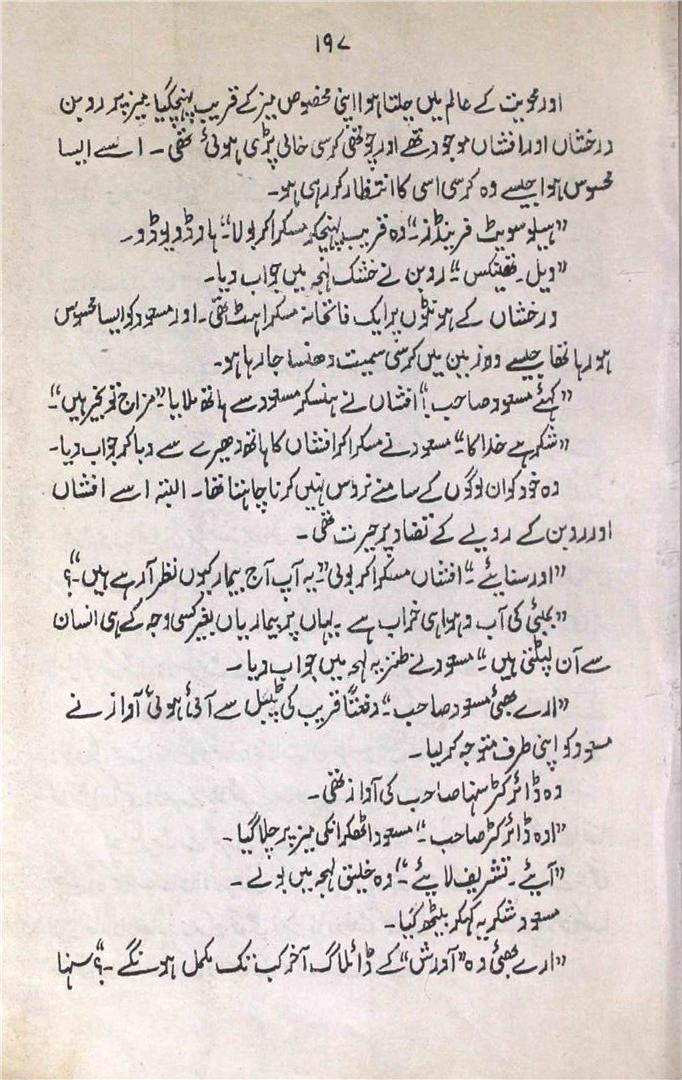 ۱۹۷
اور محویت کے عالم میں چلتا ہوا اپنی مخصوص میز کے قریب پہنچگیا میز پر روبن
درخشاں اور افشاں موجود تھے اور چوتھی کرسی خالی پڑی ہوئی تھی ۔ اسے ایسا
محسوس ہوا جیسے وہ کرسی اسی کا انتظار کر رہی ہو۔
”ہیلو سویٹ فرینڈز۔“ وہ قریب پہنچکر مسکرا کر بولا۔“ ہاؤ ڈو یو ڈو۔
”ویل۔ تھینکس۔“ روبن نے خشک لہجہ میں جواب دیا۔
درخشاں کے ہونٹوں پر ایک فاتحانہ مسکراہٹ تھی۔ اور مسعود کو ایسا محسوس
ہو رہا تھا جیسے وہ زمین میں کرسی سمیت دھنسا جا رہا ہو۔
”کہئے مسعود صاحب؟“ افشاں نے ہنسکر مسعود سے ہاتھ ملایا۔“مزاج تو بخیر ہیں“۔
”شکر ہے خدا کا۔“ مسعود نے مسکرا کر افشاں کا ہاتھ دھیرے سے دبا کر جواب دیا۔
وہ خود کو ان لوگوں کے سامنے نروس نہیں کرنا چاہتا تھا۔ البتہ اسے افشاں
اور روبن کے رویے کے تضاد پر حیرت تھی۔
”اور سنایئے ۔“ افشاں مسکرا کر بولی”۔ یہ آپ آج بیمار کیوں نظر آرہے ہیں“۔؟
”بمبئی کی آب و ہوا ہی خراب ہے یہاں پر بیماریاں بغیر کسی وجہ کے ہی انسان
سے آن لپٹتی ہیں۔“ مسعود نے طنزیہ لہجہ میں جواب دیا۔
”ارے بھئی مسعود صاحب۔“ دفعتاً قریب کی ٹیبل سے آئی ہوئی آواز نے
مسعود کو اپنی طرف متوجہ کر لیا۔
وہ ڈائرکٹر سنہا صاحب کی آواز تھی۔
”اوہ ڈائرکٹر صاحب۔“ مسعود اٹھکر انکی میز پر چلا گیا۔
”آیئے۔ تشریف لایئے۔“ وہ خلیق لہجہ میں بولے۔
مسعود شکریہ کہکر بیٹھ گیا۔
”ارے بھئی وہ ”آدرش“ کے ڈائلاگ آخر کب تک مکمل ہونگے۔؟“ سنہا